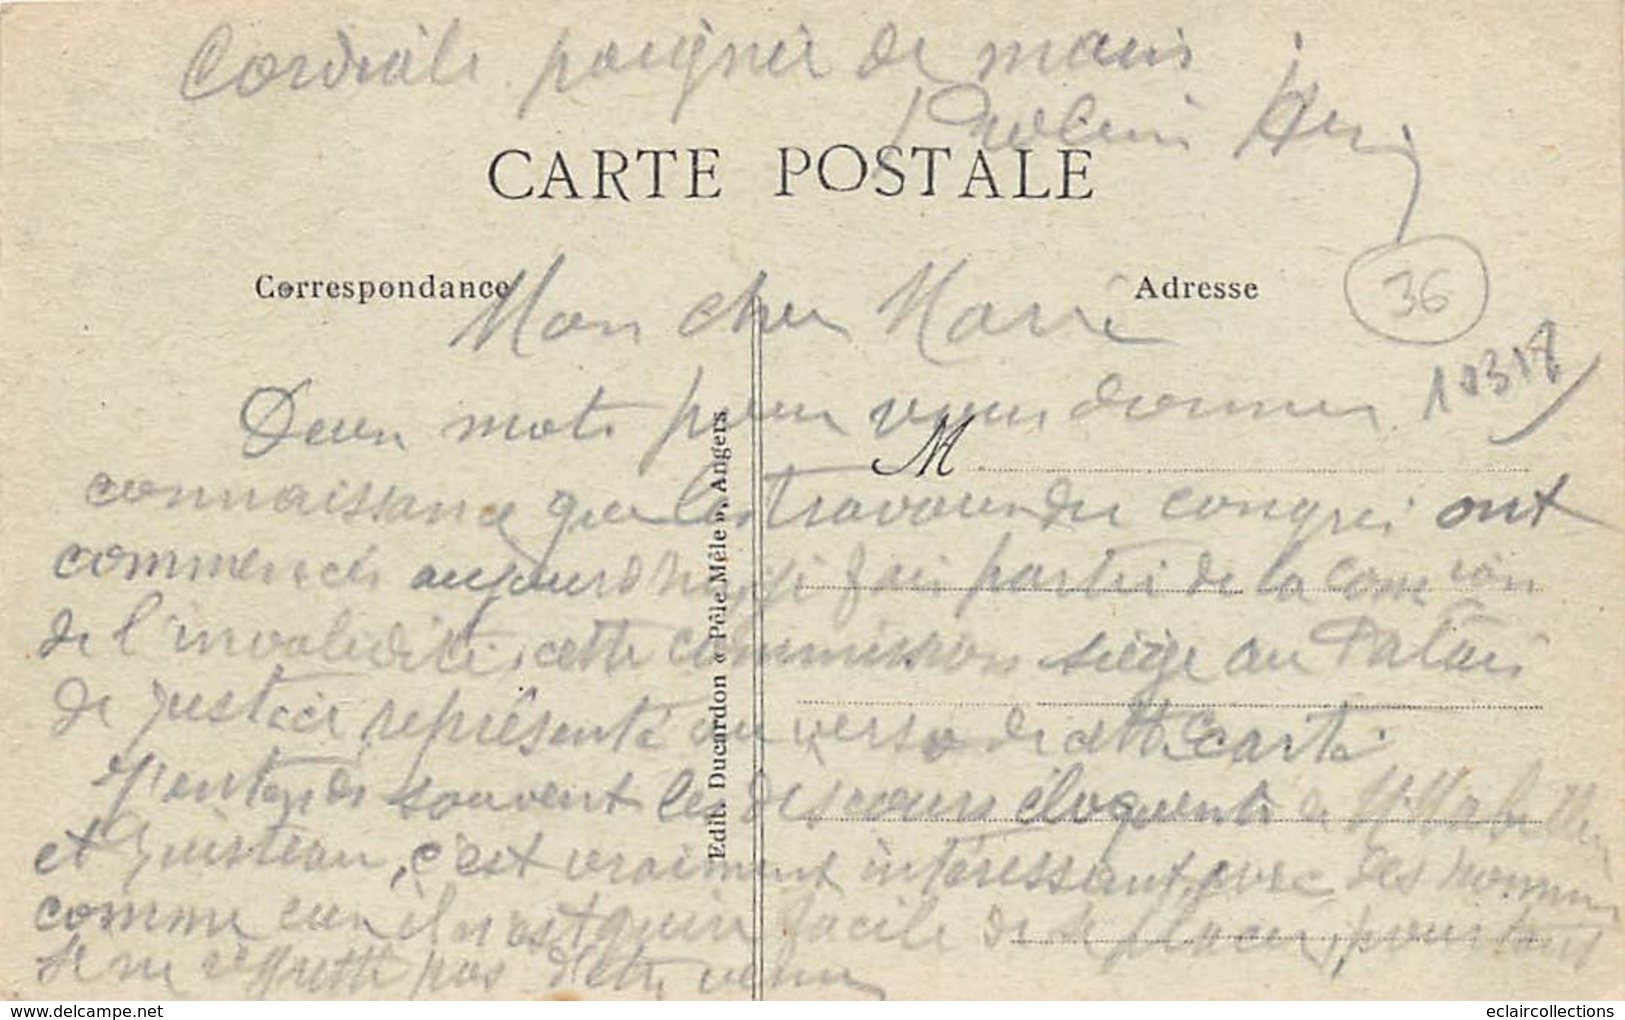 Cordiale poignée de mains
CARTE POSTALE
Correspondance
Adresse
36
Mon cher Marie
10318
Deux mots pour vous donner
M
connaissance que les travaux du congrès ont
commencés aujourd'hui je fais partie de la Com ion
de l'invalidité, cette commission siège au Palais
de justice représenté au verso de cette carte
J'entends souvent les discours éloquents de Mr
et Guisteau, c'est vraiment intéressant, avec des hommes
comme eux il n'est guère facile de se placer, pourtant
je ne regrette pas d'être venu
Edit. Ducardon « Pêle Mêle », Angers
www.delcampe.net
eclaircollections